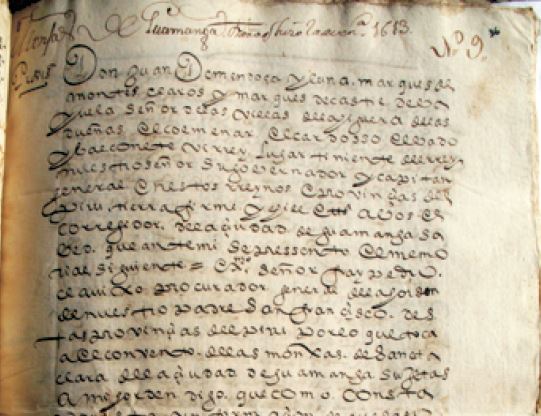 de Guamanga 1613.
Nº 9.
Don Juan De mendoça y luna, marques de
montes claros y marques de castil de ba
yuela Señor de las Villas de la yguera de las
dueñas, El colmenar, El cardosso El Vado
y balconete Virrey lugar tiniente del rey
nuestro señor Su governador y capitan
general En estos reynos E provinçias del
piru, tierra firme y chile A vos El
corregidor de la çiudad de guamanga Sa
bed. que ante mi Se pressento El memo
rial siguiente = Exmo. Señor fray pedro.
procurador general de la orden
de nuestro padre San françisco. de es
tas provinçias del piru por lo que toca
a El convento de las monxas de Santa
clara de la çiudad de guamanga Sugetas
a mi orden digo. que como consta